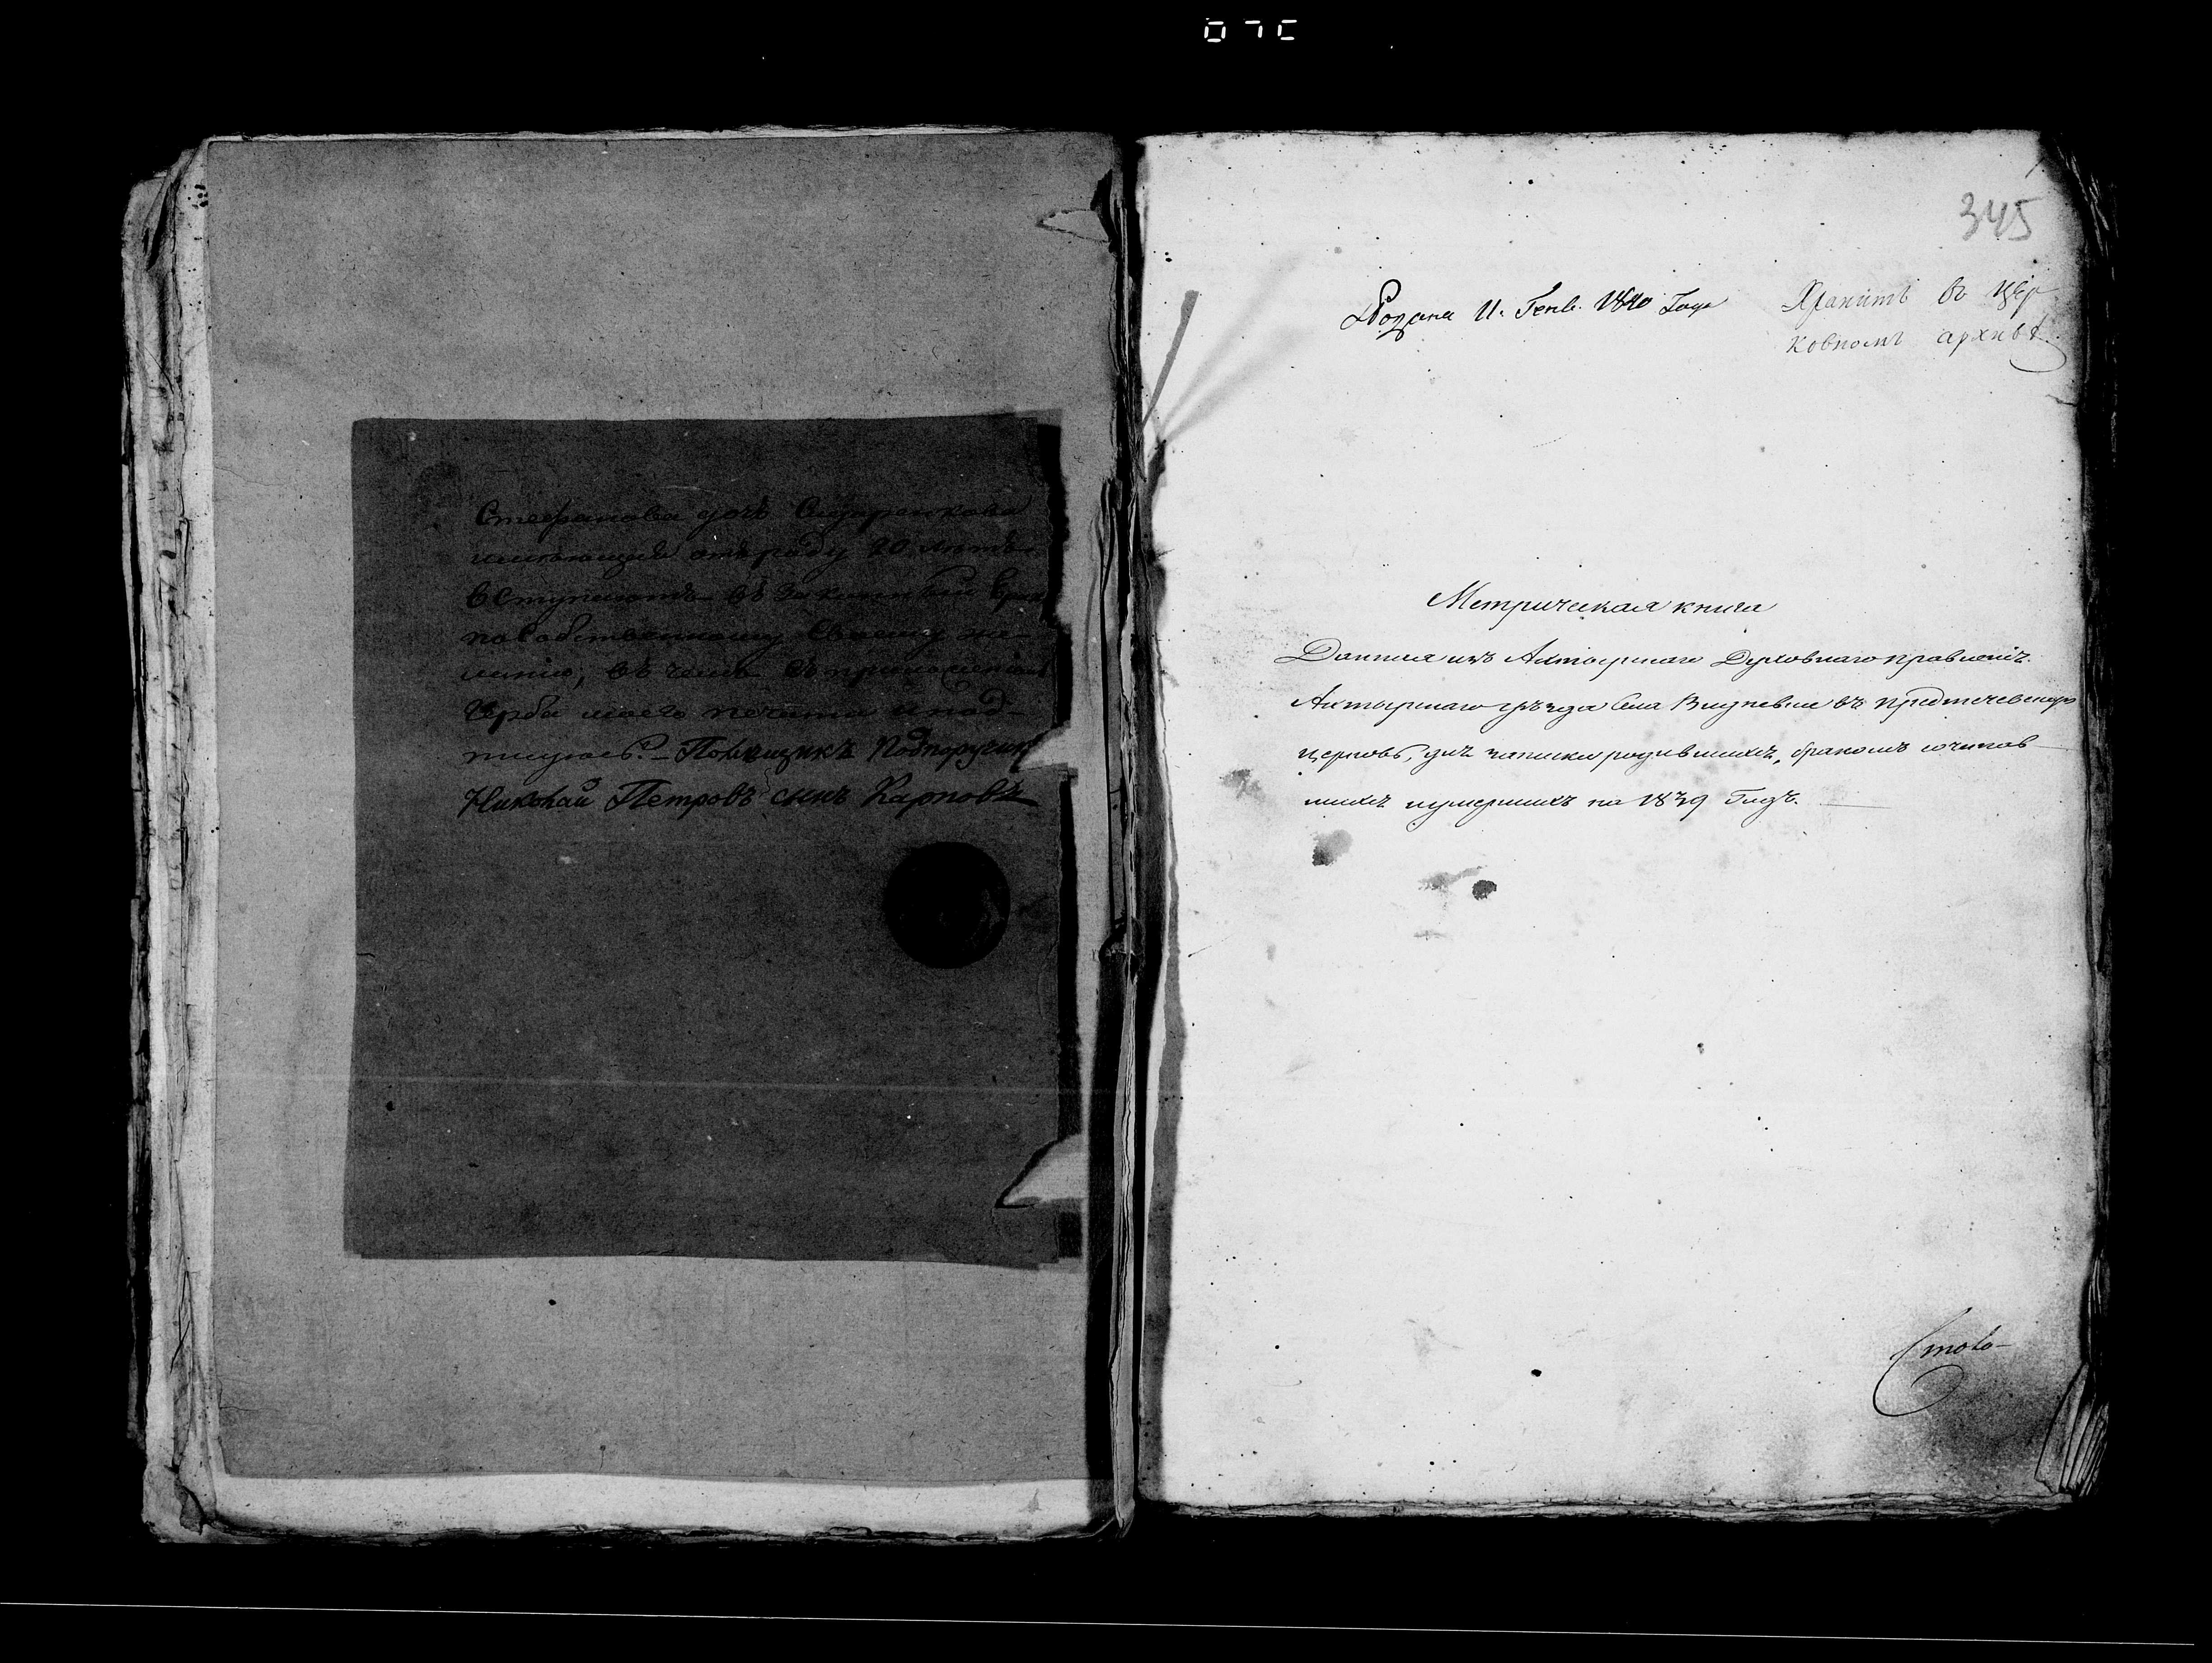 Стефанова дочь Сидоренкова
имеющие отъ роду 20 летъ
вступаютъ въ законный бра
по собственному своему же-
ланию, въ чемъ съ приложениемъ
герба моего печати и под-
писуюсь. – Помещикъ Подпоручик
Николай Петровъ сынъ Карповъ
345
Подана 11. Генв. 1840 Года
Хранить въ цер
ковномъ архивѣ.
Метрическая книга
Данная изъ Ахтырскаго Духовнаго правления
Ахтырскаго уѣзда села въ Предтечевскую
церковь, для записки родившихся, бракомъ сочетав
шихся и умершихъ на 1839 Годъ.